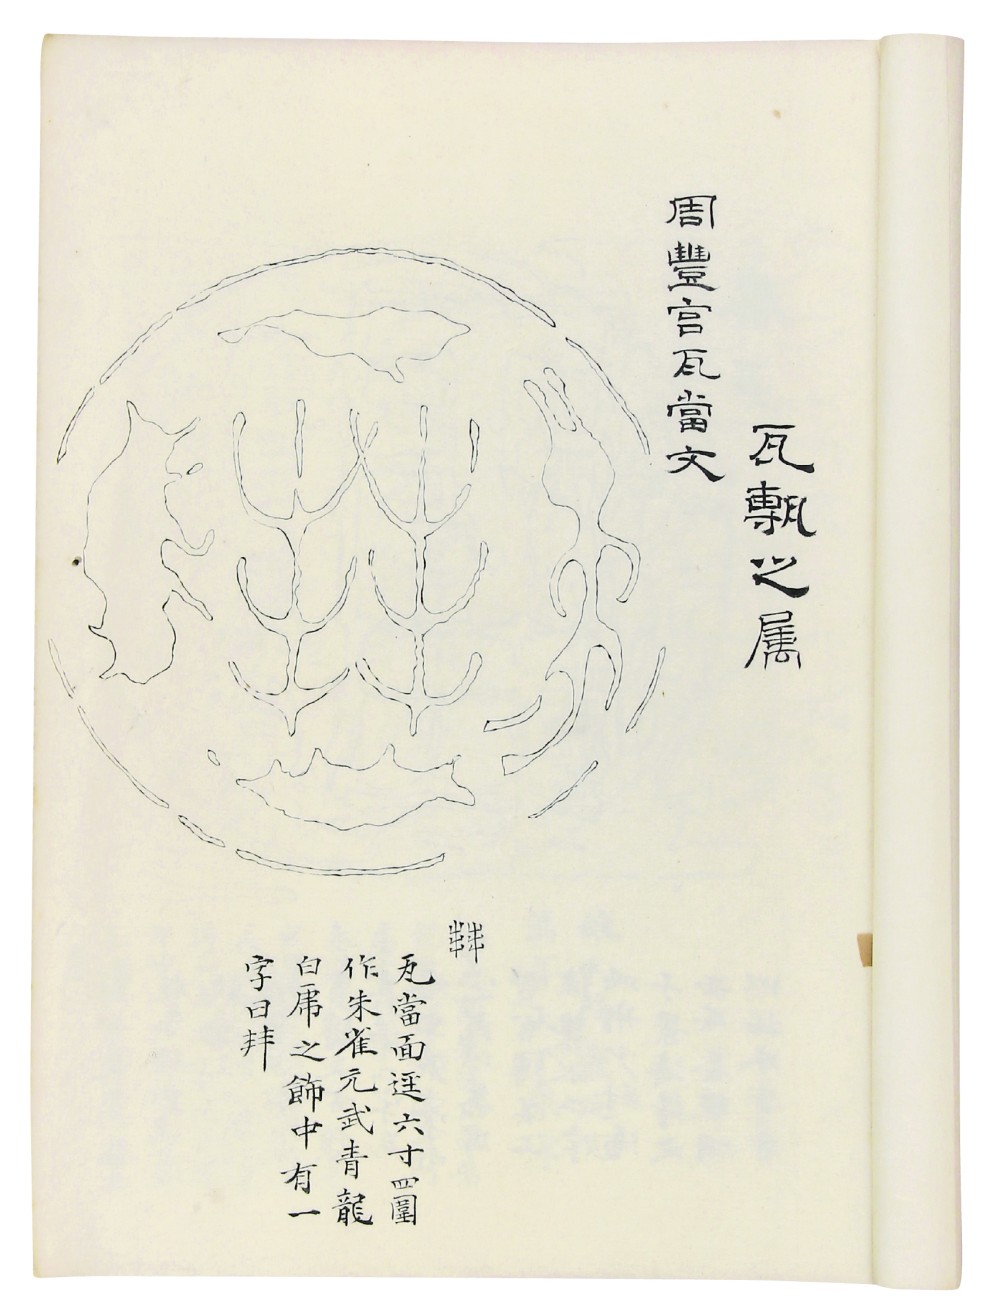 瓦甎之属
周豐宫瓦當文
丰丰
瓦當面逕六寸四圍
作朱雀元武青龍
白虎之飾中有一
字曰拜